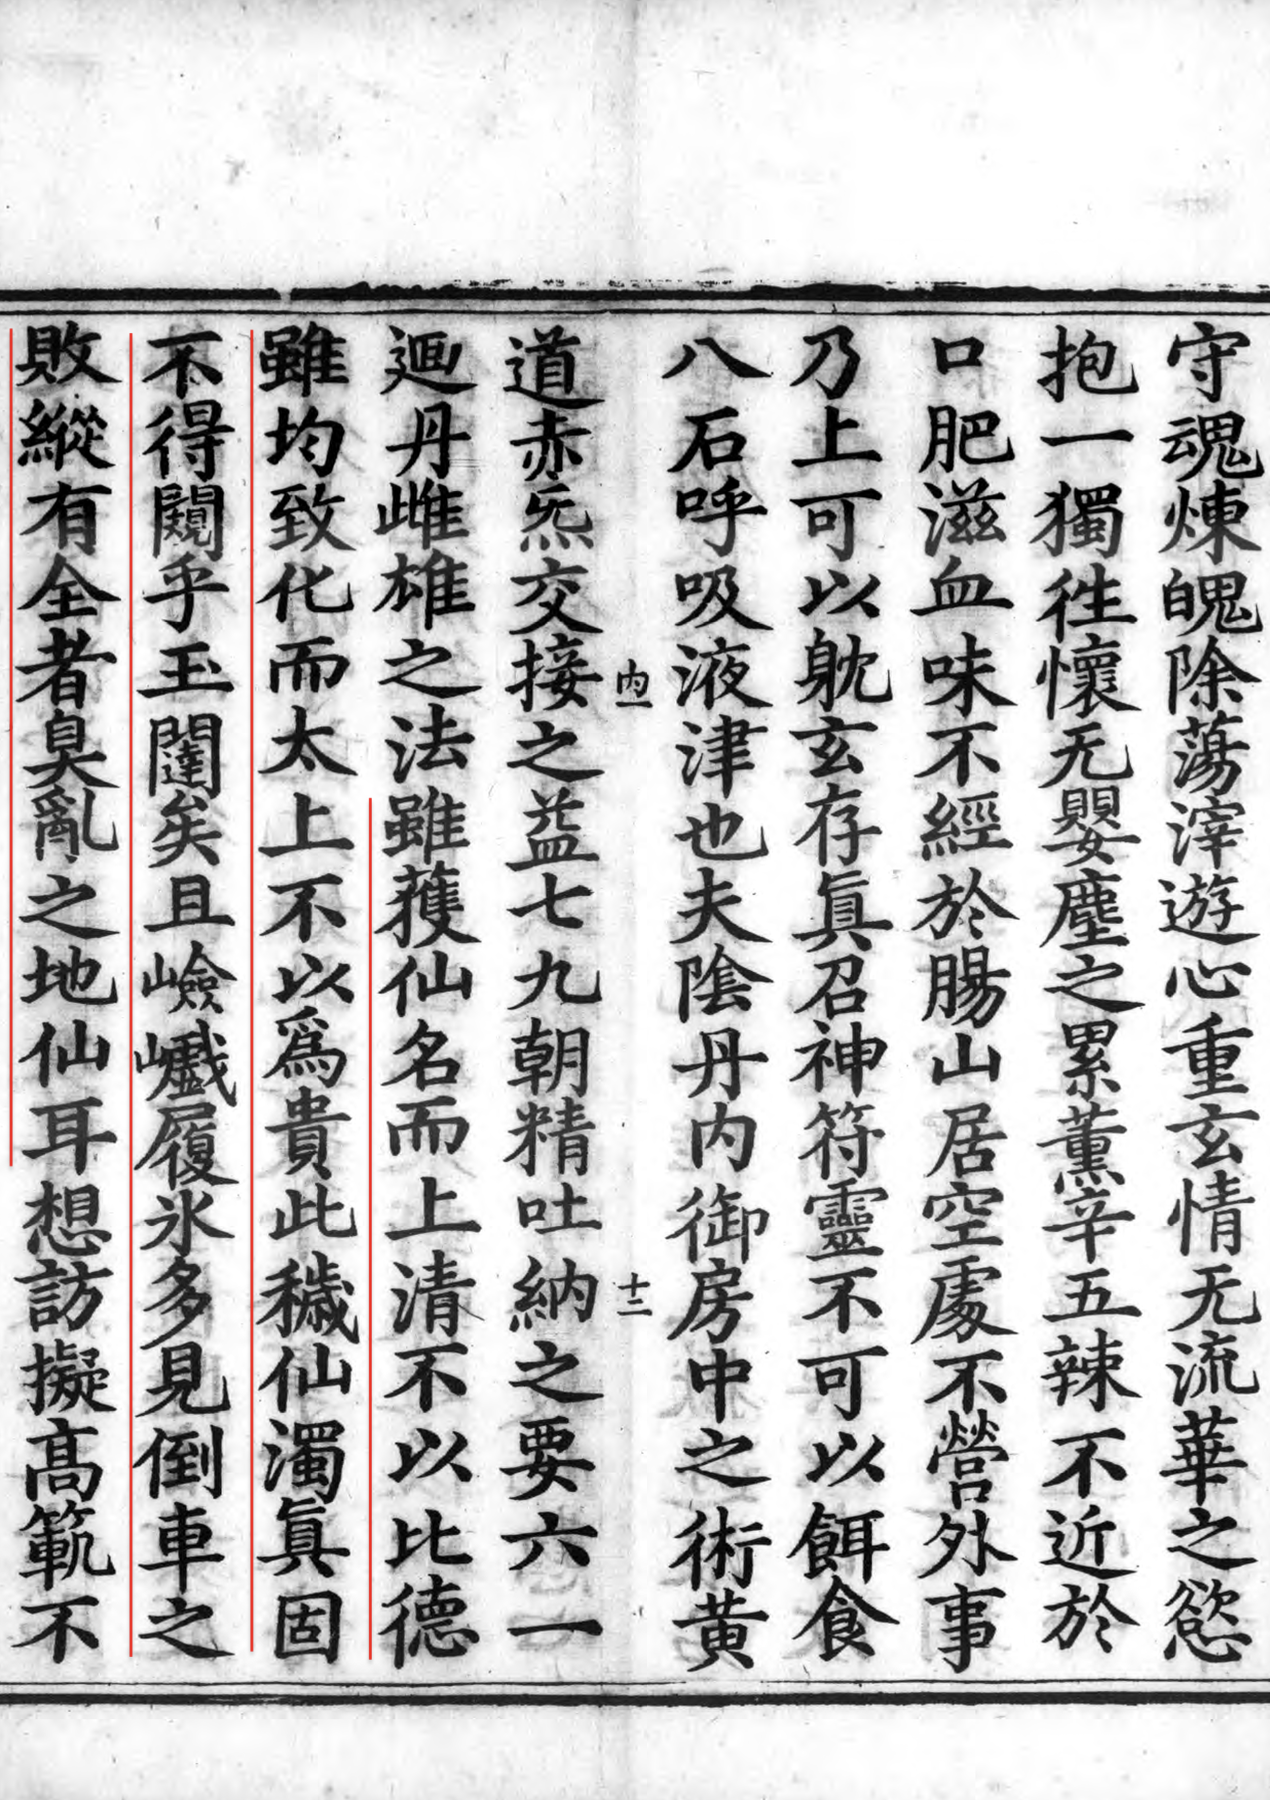 守魂煉魄除蕩滓遊心重玄情无流華之慾
抱一獨徃懷无嬰塵之累薰辛五辣不近於
口肥滋血味不經於腸山居空處不營外事
乃上可以躭玄存眞召神符靈不可以餌食
八石呼吸液津也夫陰丹内御房中之術黄
内一
十二
道赤炁交接之益七九朝精吐納之要六一
迴丹雌雄之法雖獲仙名而上清不以比德
雖均致化而太上不以爲貴此穢仙濁眞固
不得闚乎玉闥矣且嶮巇履氷多見倒車之
敗縱有全者臭亂之地仙耳想訪擬髙範不